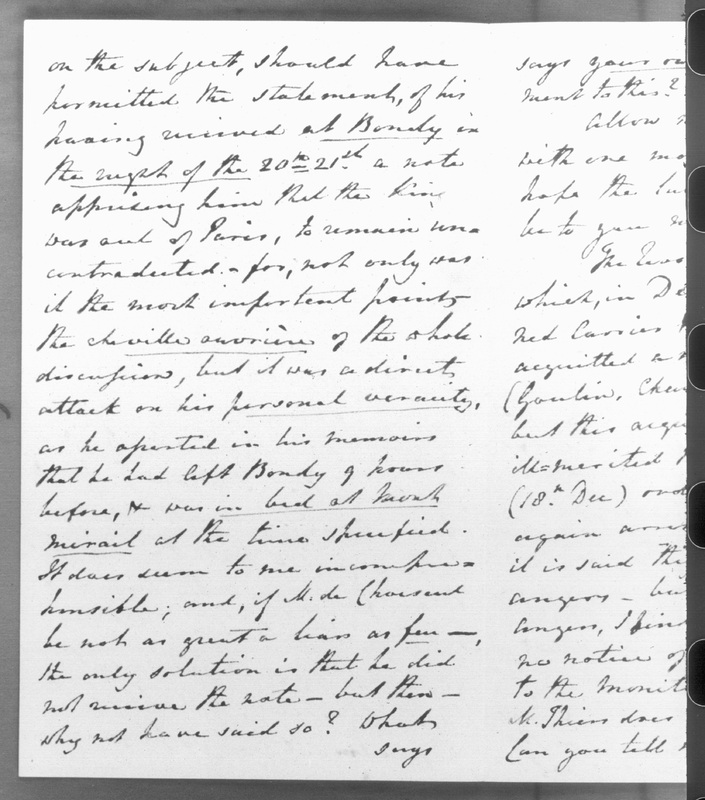 on the subject, should have
permitted the statement, of his
having received at Bondy in
the night of the 20th 21st a note
apprising him that the King
was out of Paris, to remain un=
contradicted - for, not only was
it the most important point -
the cheville ouvrière of the whole
discussion, but it was a direct
attack on his personal veracity,
as he asserted in his memoirs
that he had left Bondy 9 hours
before, & was in bed at
mirail at the time specified.
It does seem to me incompre=
hensible; and, if M. de Choiseul
be not as great a liar as
the only solution is that he did
not receive the note - but then -
why not have said so? What
says
says yours
ment to this?
Allow
with one
hope the
be to you
The
which, in
ned Carrier
acquitted a
(Goulin,
but this
ill=merited
(18th Dec)
again
it is said
angers -
angers, I find
no notice of
to the Monit
M. Thiers does
Can you tell